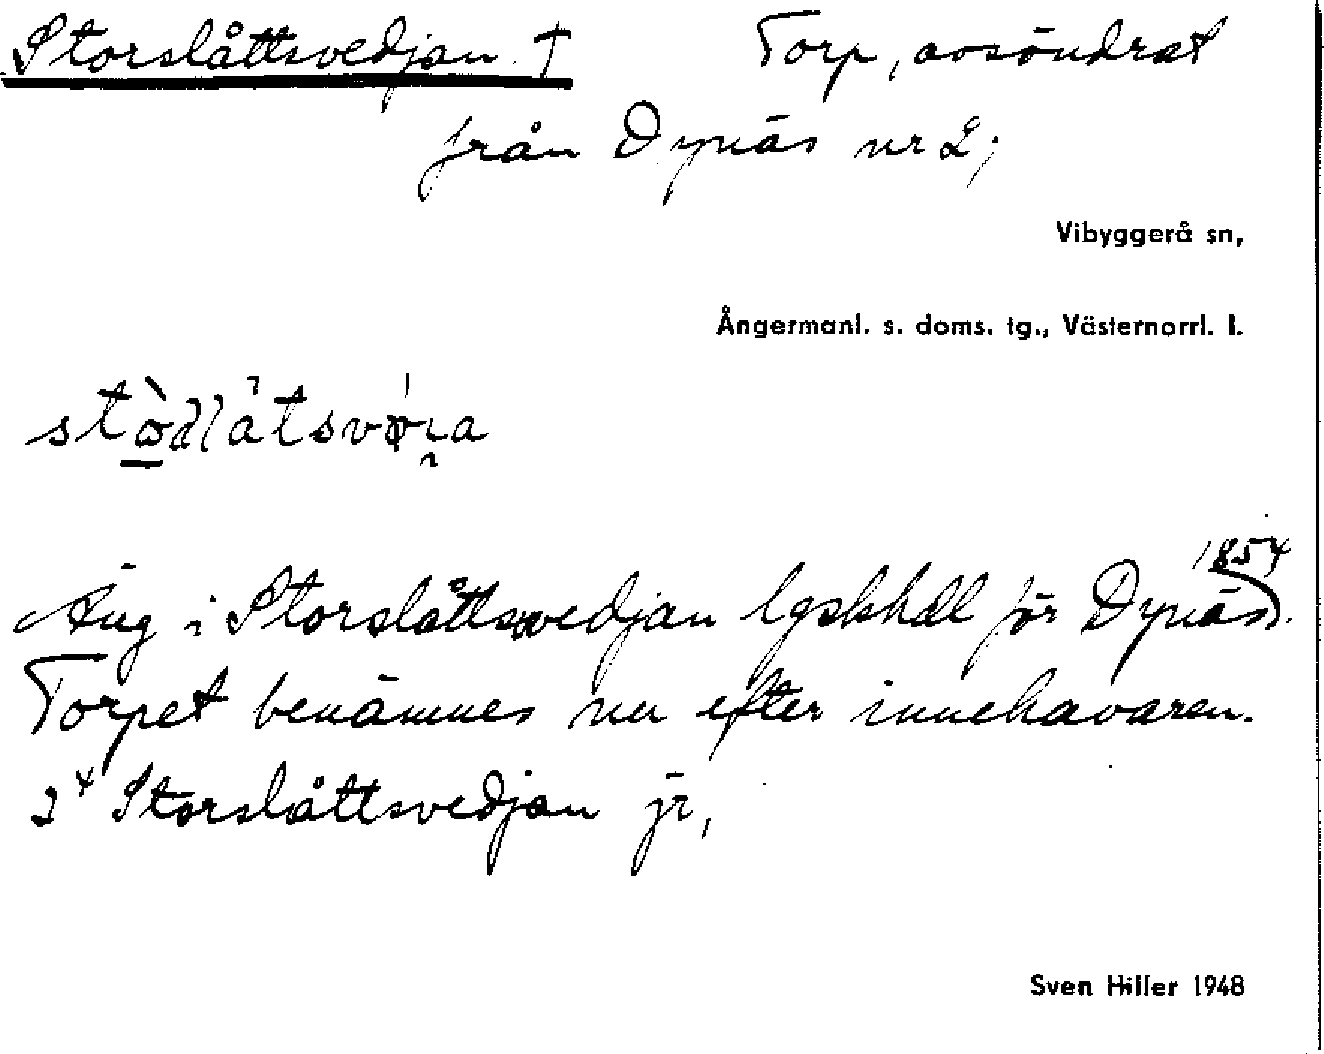 Storslåttsvedjan † Torp, avsöndrat
från Dynäs nr 2;
Vibyggerå sn,
Ångermanl. s. doms. tg., Västernorrl. l.
Äng i Storslåttsvedjan lgskhdl för Dynäs 1854).
Torpet benämnes nu efter innehavaren.
Storslåttsvedjan jr,
Sven Hiller 1948